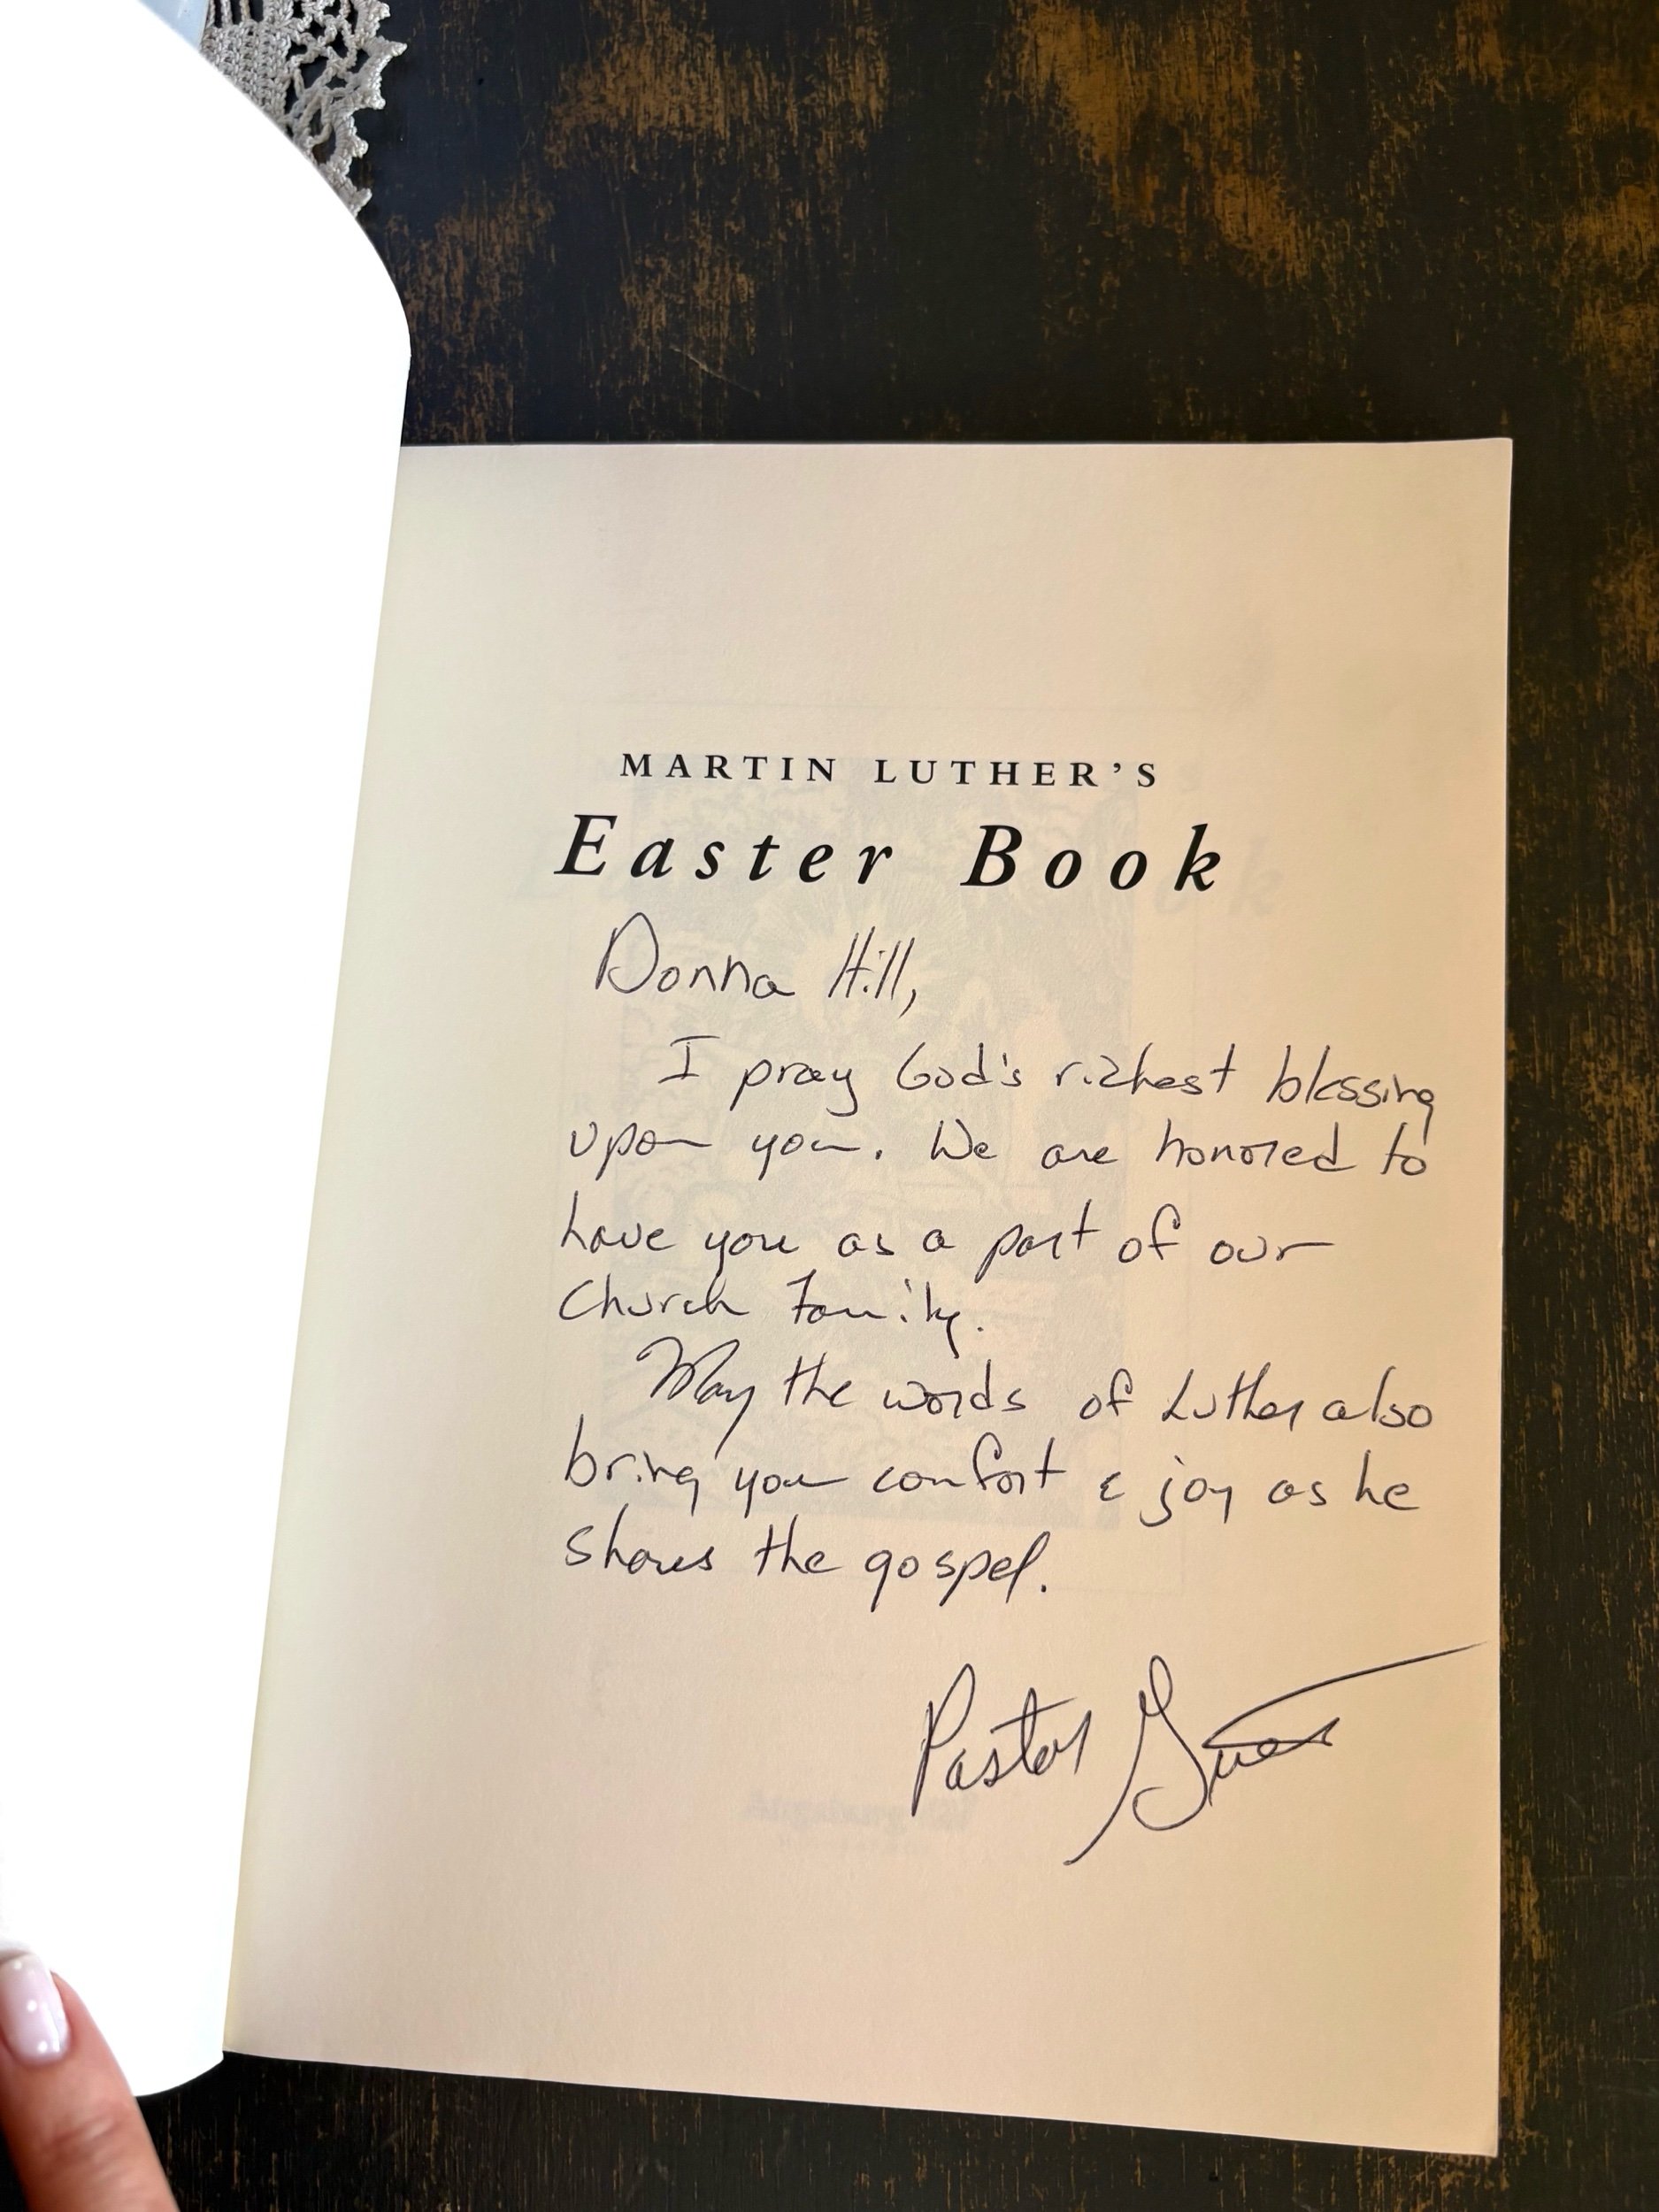 MARTIN LUTHER'S
Easter Book
Donna Hill,
I pray God's richest blessing
upon you. We are honored to
have you as a part of our
Church Family.
May the words of Luther also
bring you comfort & joy as he
shares the gospel.
Pastor